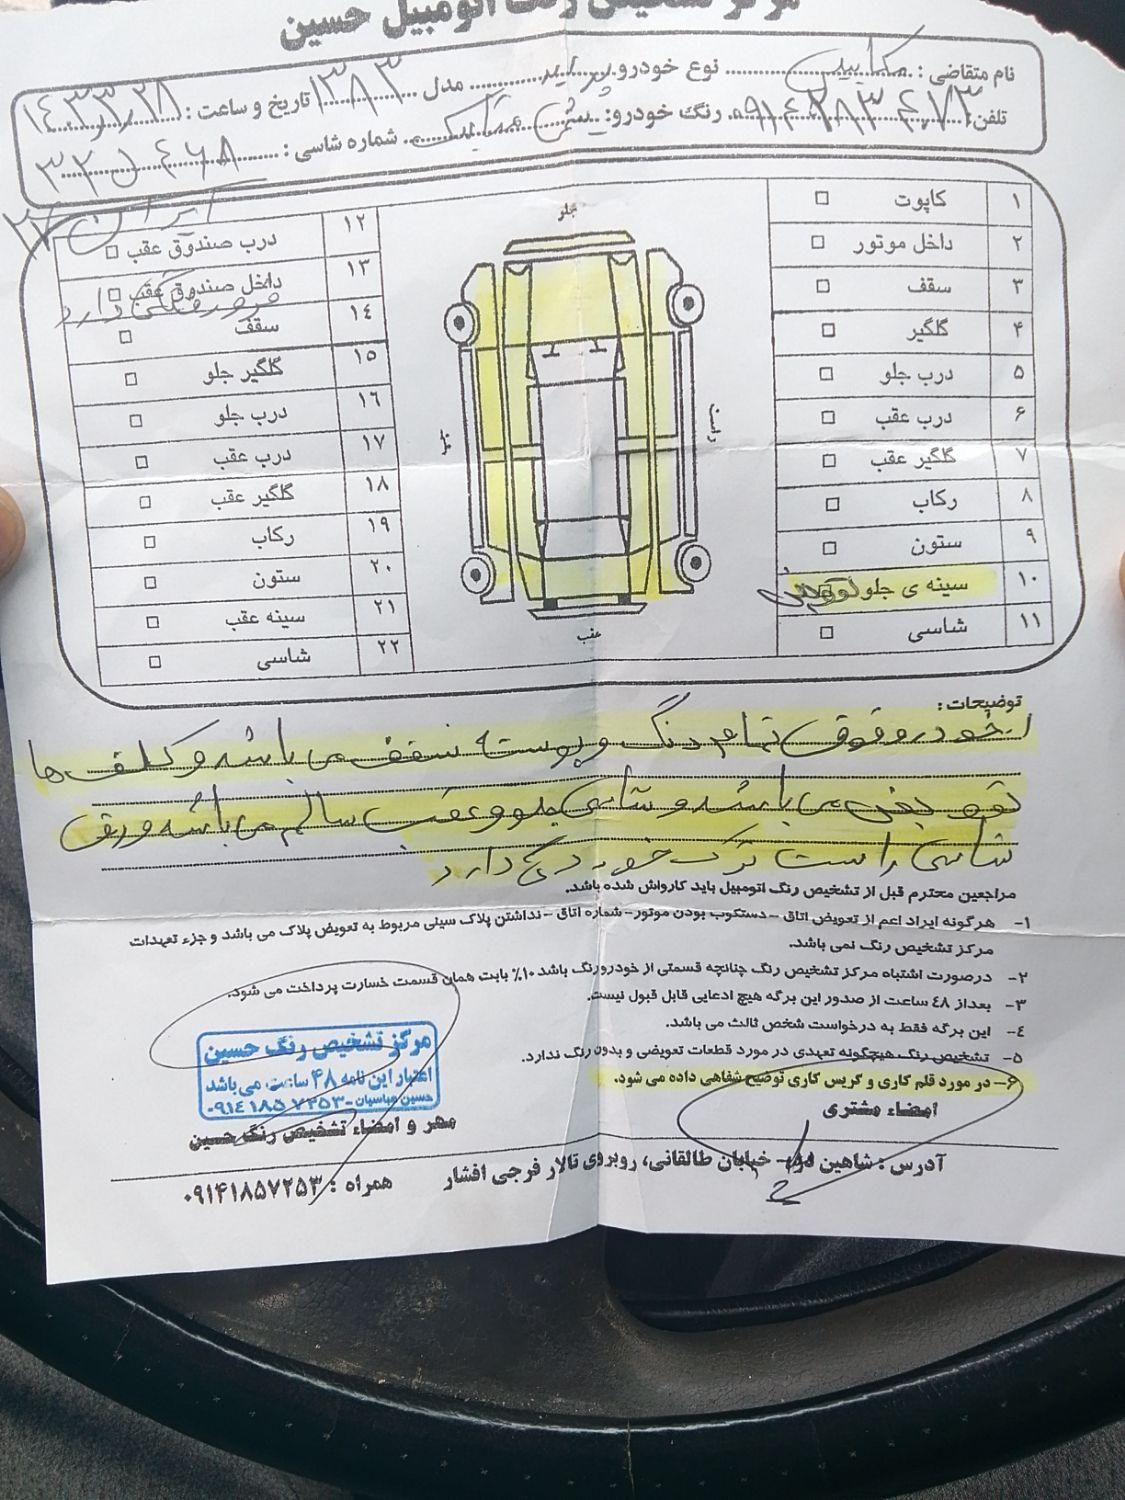 مرکز تشخیص رنگ اتومبیل حسین
نام متقاضی : نوع خودرو پراید مدل ۱۳۸۳ تاریخ و ساعت : ۱۴۰۳٫۳٫۲۸
تلفن: رنگ خودرو: یشمی متالیک شماره شاسی : ۳۲ ل ۴۶۸
ایران ۲۷
جلو
راست
چپ
عقب
۱ کاپوت
۲ داخل موتور
۳ سقف
۴ گلگیر
۵ درب جلو
۶ درب عقب
۷ گلگیر عقب
۸ رکاب
۹ ستون
۱۰ سینه ی جلو تعویض
۱۱ شاسی
۱۲ درب صندوق عقب
۱۳ داخل صندوق عقب
خوردگی دارد
۱٤ سقف
۱۵ گلگیر جلو
۱۶ درب جلو
۱۷ درب عقب
۱۸ گلگیر عقب
۱۹ رکاب
۲۰ ستون
۲۱ سینه عقب
۲۲ شاسی
توضیحات :
خودرو فوق تمام رنگ و پوسته سقف می باشد و کلاف ها
می باشد و شاسی جلو و عقب سالم می باشد و رو
شاسی راست ترک خوردگی دارد
مراجعین محترم قبل از تشخیص رنگ اتومبیل باید کارواش شده باشد.
۱- هرگونه ایراد اعم از تعویض اتاق - دستکوب بودن موتور - شماره اتاق - نداشتن پلاک سینی مربوط به تعویض پلاک می باشد و جزء تعهدات
مرکز تشخیص رنگ نمی باشد.
۲- درصورت اشتباه مرکز تشخیص رنگ چنانچه قسمتی از خودرو رنگ باشد ۱۰٪ بابت همان قسمت خسارت پرداخت می شود.
۳- بعداز ٤۸ ساعت از صدور این برگه هیچ ادعایی قابل قبول نیست.
٤- این برگه فقط به درخواست شخص ثالث می باشد.
۵- تشخیص رنگ هیچگونه تعهدی در مورد قطعات تعویضی و بدون رنگ ندارد.
۶- در مورد قلم کاری و گریس کاری توضیح شفاهی داده می شود.
امضاء مشتری
مرکز تشخیص رنگ حسین
اعتبار این نامه ۴۸ ساعت می باشد
حسین عباسیان - ۰۹۱۴۱۸۵۷۲۵۳
مهر و امضاء تشخیص رنگ حسین
آدرس : شاهین دژ - خیابان طالقانی، روبروی تالار فرجی افشار همراه : ۰۹۱۴۱۸۵۷۲۵۳